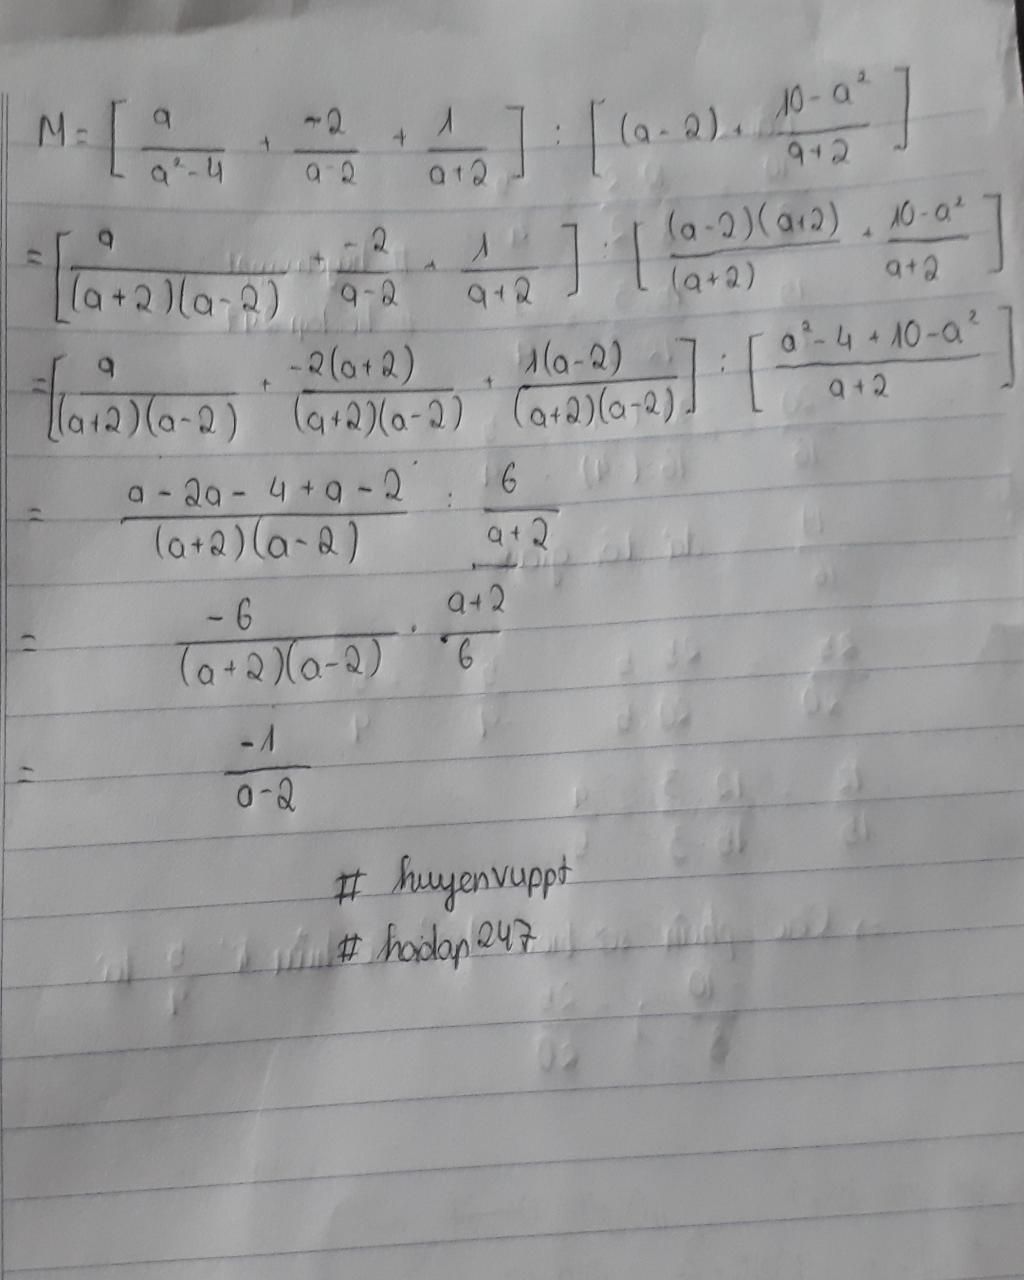 M = [ a/(a² - 4) + -2/(a - 2) + 1/(a + 2) ] : [ (a - 2) + (10 - a²)/(a + 2) ]
= [ a/((a + 2)(a - 2)) + -2/(a - 2) + 1/(a + 2) ] : [ (a - 2)(a + 2)/(a + 2) + (10 - a²)/(a + 2) ]
= [ a/((a + 2)(a - 2)) + -2(a + 2)/((a + 2)(a - 2)) + 1(a - 2)/((a + 2)(a - 2)) ] : [ (a² - 4 + 10 - a²)/(a + 2) ]
= (a - 2a - 4 + a - 2)/((a + 2)(a - 2)) : 6/(a + 2)
= -6/((a + 2)(a - 2)) . (a + 2)/6
= -1/(a - 2)
# huyenvuppt
# hoidap247